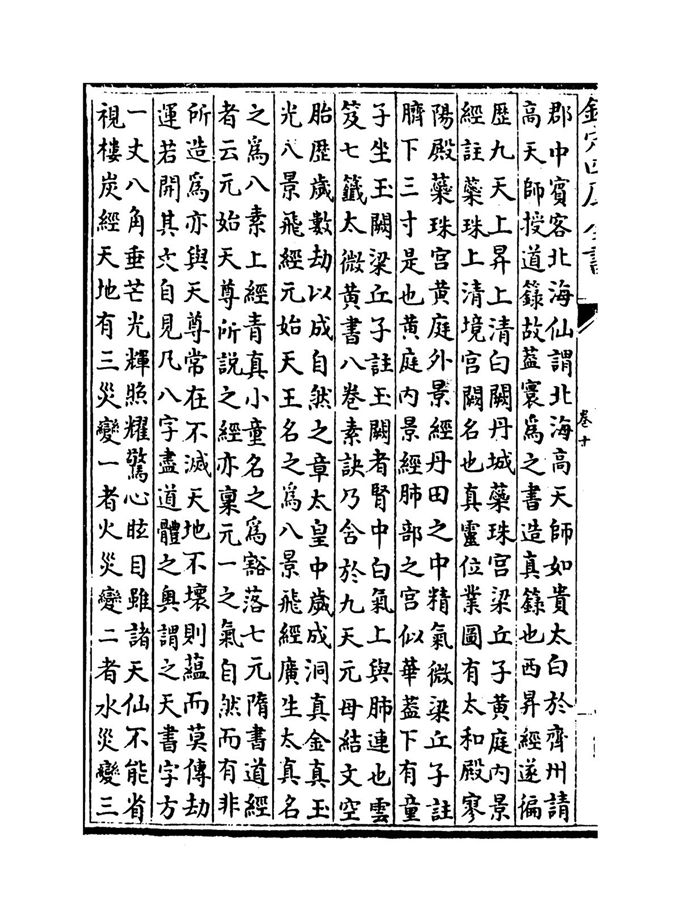 欽定四庫全書
卷十
郡中賓客北海仙謂北海高天師如貴太白於齊州請
高天師授道籙故葢寰爲之書造真籙也西昇經遂徧
歴九天上昇上清白闕丹城蘂珠宮梁丘子黄庭内景
經註蘂珠上清境宮闕名也真靈位業圖有太和殿寥
陽殿蘂珠宮黄庭外景經丹田之中精氣微梁丘子註
臍下三寸是也黄庭内景經肺部之宮似華葢下有童
子坐玉闕梁丘子註玉闕者腎中白氣上與肺連也雲
笈七籤太微黄書八卷素訣乃含於九天元母結文空
胎歴歲數劫以成自然之章太皇中歲成洞真金真玉
光八景飛經元始天王名之爲八景飛經廣生太真名
之爲八素上經青真小童名之爲豁落七元隋書道經
者云元始天尊所説之經亦稟元一之氣自然而有非
所造爲亦與天尊常在不滅天地不壞則藴而莫傳劫
運若開其文自見凡八字盡道體之奥謂之天書字方
一丈八角垂芒光輝照耀驚心眩目雖諸天仙不能省
視樓炭經天地有三災變一者火災變二者水災變三